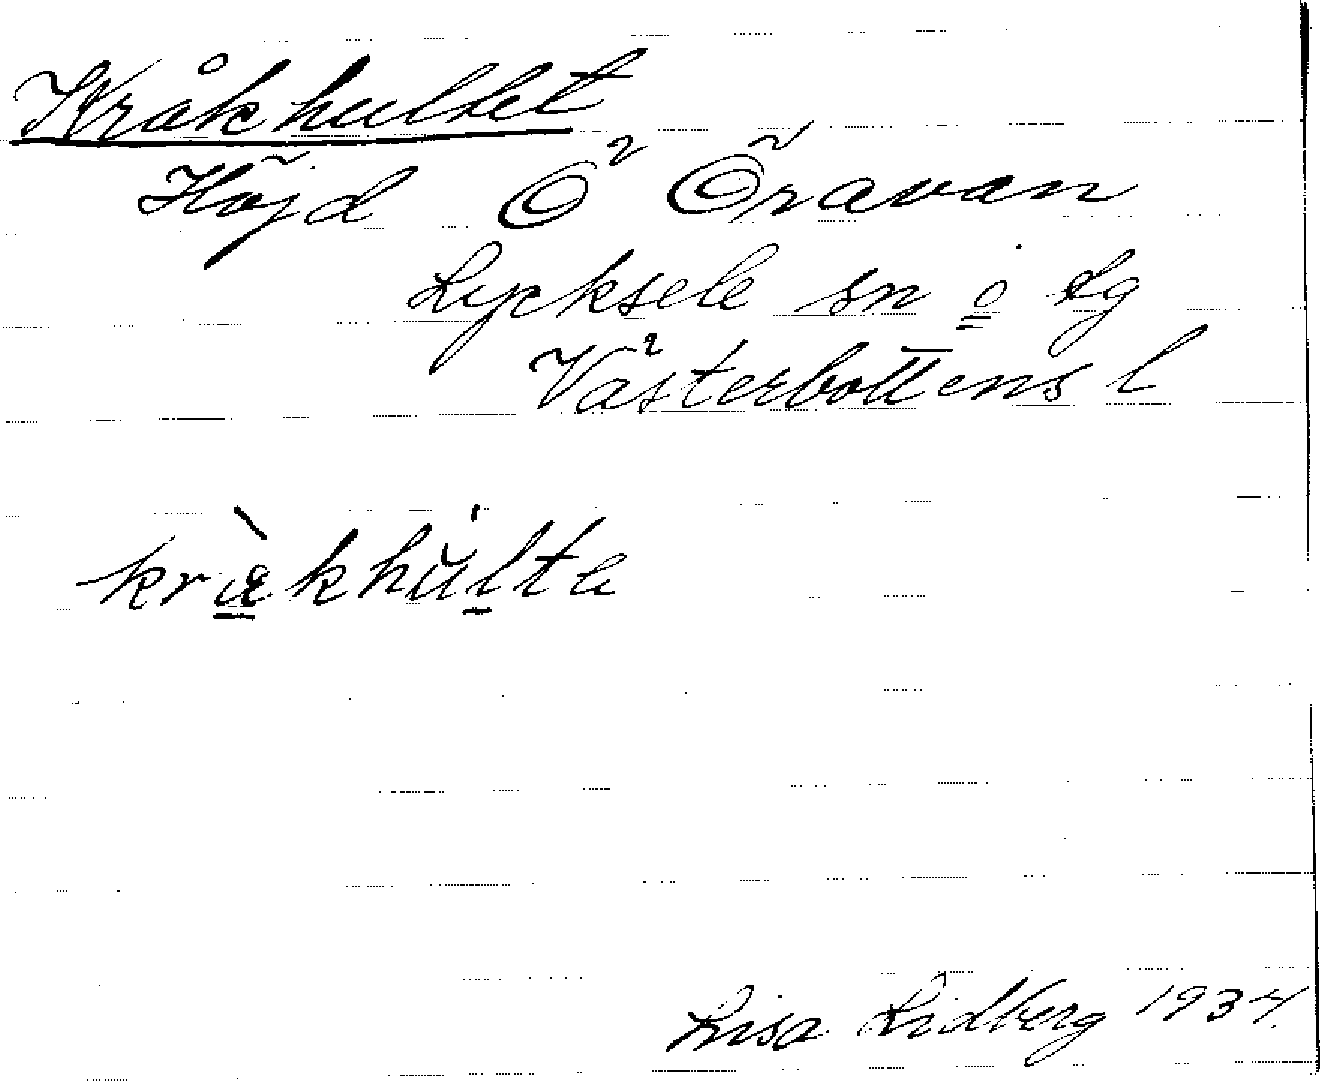 Kråkhultet
Höjd Ö Öravan
Lycksele sn o Lg
Västerbottens l
kråkhúlte
Lisa Lidberg 1934.